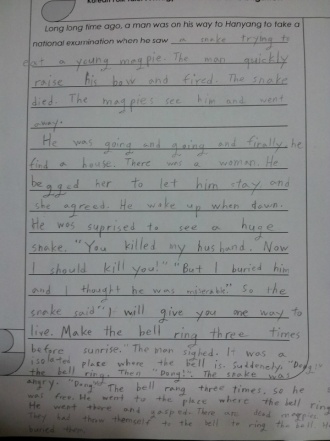 Long long time ago, a man was on his way to Hanyang to take a
national examination when he saw a snake trying to
eat a young magpie. The man quickly
raise his bow and fired. The snake
died. The magpies see him and went
away.
He was going and going and finally he
find a house. There was a woman. He
begged her to let him stay and
she agreed. He wake up when dawn.
He was suprised to see a huge
snake. "You killed my husband. Now
I should kill you!" "But I buried him
and I thought he was miserable." So the
snake said "I will give you one way to
live. Make the bell ring three times
before sunrise." The man sighed. It was a
isolated place where the bell is. Suddenly, "Dong!"
the bell ring. Then "Dong!". The snake was
angry. "Dong!" The bell rang three times, so he
was free. He went to the place where the bell ring
He went there and gasped. There are dead magpies
They had threw themself to the bell to ring the bell
buried them.